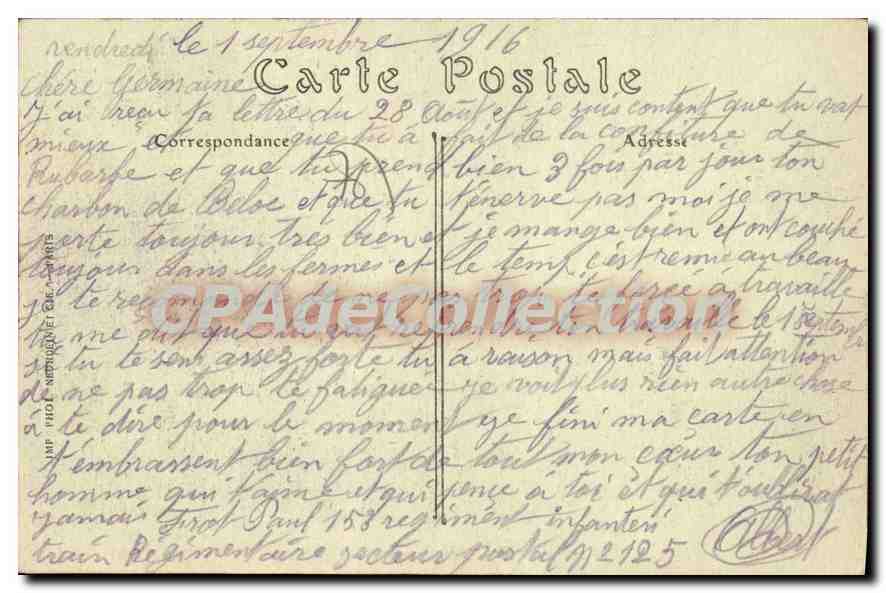 vendredi le 1 septembre 1916
Carte Postale
chére Germaine
J'ai reçu ta lettre du 28 Août et je suis content que tu vat
Correspondance
Adresse
mieux et que tu à fait de la confiture de
Rubarbe et que tu prend bien 3 fois par jour ton
charbon de Beloc et que tu t'énerve pas moi je me
porte toujour tres bien et je mange bien et ont couché
toujour dans les fermes et le temp c'est remie au beau
je te de ne pas trop t'éforcé à travaille
tu me dit que tu le 1 Septembre
si tu te sent assez forte tu à raison mais fait attention
de ne pas trop te fatiguee je voit plus rien autre chose
à te dire pour le moment je fini ma carte en
t'embrassent bien fort de tout mon cœur ton petit
homme qui t'aime et qui pence à toi et qui t'oublirat
jamais Paul 158 regiment infanteri
train Regimentaire secteur postal n° 125 Albert
IMP PHOT. NEURDEIN ET CIE. - PARIS
CPAdeCollection